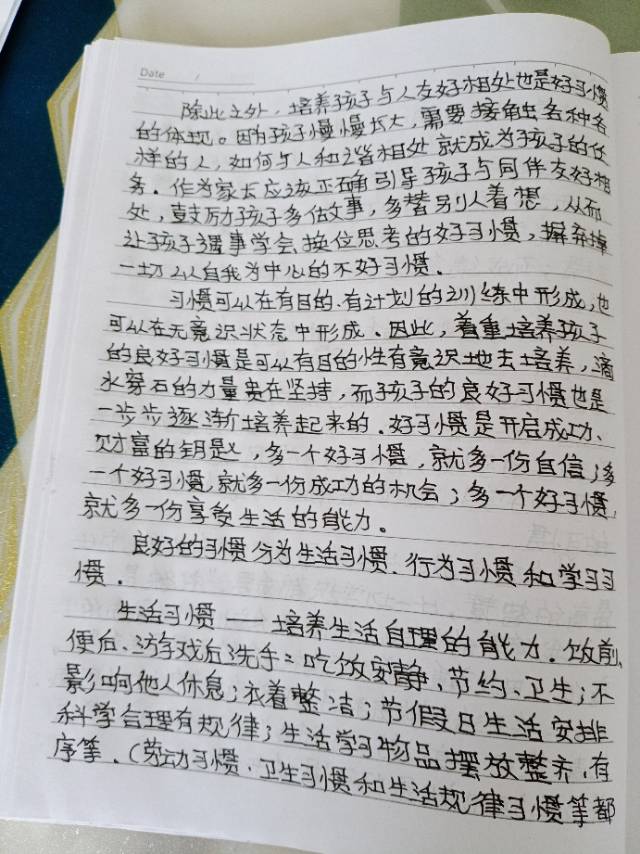 Date /
除此之外，培养孩子与人友好相处也是好习惯
的体现。因为孩子慢慢长大，需要接触各种各
样的人，如何与人和谐相处就成为孩子的任
务。作为家长应该正确引导孩子与同伴友好相
处，鼓励孩子多做事，多替别人着想，从而
让孩子遇事学会换位思考的好习惯，摒弃掉
一切以自我为中心的不好习惯．
习惯可以在有目的、有计划的训练中形成，也
可以在无意识状态中形成．因此，着重培养孩子
的良好习惯是可以有目的性有意识地去培养，滴
水穿石的力量贵在坚持，而孩子的良好习惯也是
一步步逐渐培养起来的．好习惯是开启成功、
财富的钥匙，多一个好习惯，就多一份自信；多
一个好习惯，就多一份成功的机会；多一个好习惯，
就多一份享受生活的能力。
良好的习惯分为生活习惯．行为习惯和学习习
惯．
生活习惯——培养生活自理的能力．饭前、
便后、游戏后洗手；吃饭安静、节约、卫生；不
影响他人休息；衣着整洁；节假日生活安排
科学合理有规律；生活学习物品摆放整齐，有
序等．（劳动习惯、卫生习惯和生活规律习惯等都